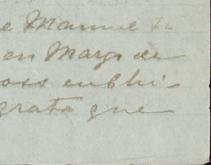 e Manuel de
en Mayo de
oss en bhi-
grato que